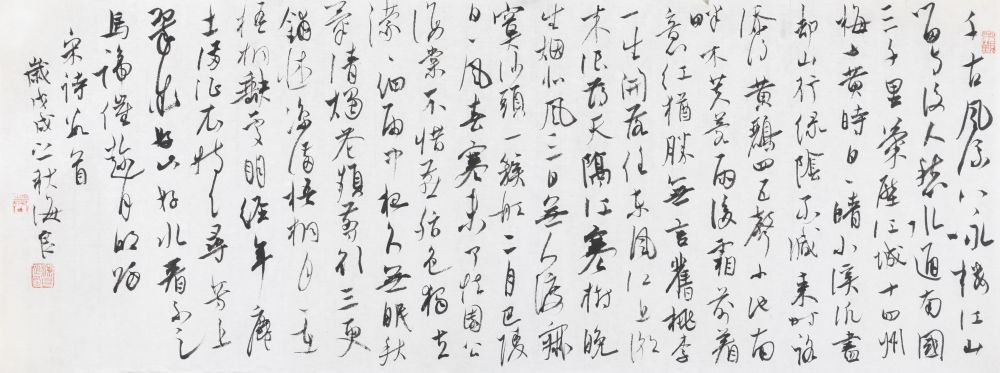 千古風流八詠樓江山
留与後人愁水通南國
三千里氣壓江城十四州
梅子黄時日日晴小溪泛盡
却山行绿陰不減来時路
添得黄鸝四五聲小池南
畔木芙蓉雨後霜前着
意红猶勝無言舊桃李
一生開落任東風江上潮
来浪薄天隔江寒樹晚
生烟北風三日無人渡寂
寞沙頭一簇船二月巴陵
日日風春寒未了怯園公
海棠不惜胭脂色獨立
濛濛细雨中夜久無眠秋
氣清燭花頻剪欲三更
鋪床凉滿梧桐月月在
梧桐缺處明經年塵
土滿征衣特特尋芳上
翠微好山好水看不足
馬蹄催趁月明歸
宋詩首
歲戊戌之秋海